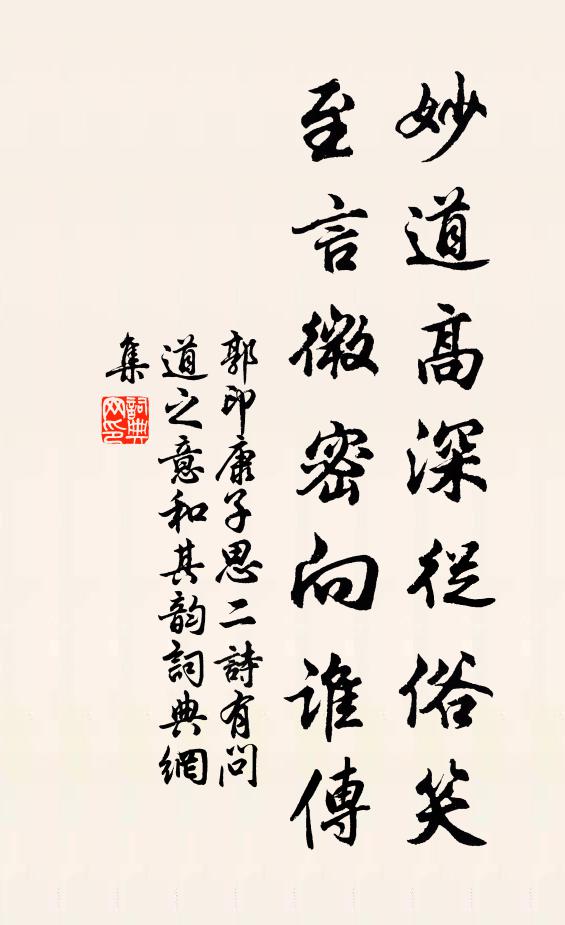 妙道高深從俗笑
至言微密向誰傳
郭印康子思二詩有問
道之意和其韵詞典網
集
詞典
网印